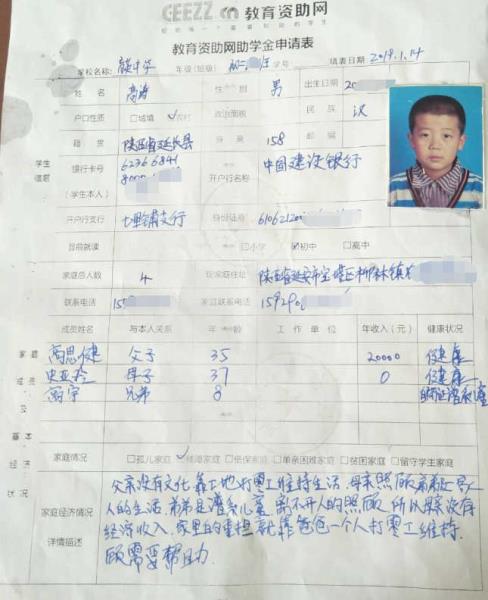 CEEZZ 教育资助网
教育资助网助学金申请表
学校名称: 年级(班级) 学号 填表日期: 2019.1.14
姓名 高涛 性别 男 出生日期 20
户口性质 □城镇 ✓农村 政治面貌 民族 汉
籍贯 陕西省延长县 身高 158 邮编
学生信息
银行卡号 6236 6841 开户行名称 中国建设银行
(学生本人)
开户行支行 七里铺支行 身份证号 610621200
目前就读 □小学 ☑初中 □高中
家庭总人数 4 现家庭住址 陕西省延安市宝塔区柳林镇
联系电话 15 家庭联系电话 159290
成员姓名 与本人关系 年龄 工作单位 年收入(元) 健康状况
家庭成员及基本经济状况
高思健 父子 35 20000 健康
史亚玲 母子 37 0 健康
高宇 兄弟 8
家庭情况 □孤儿家庭 ✓残障家庭 □低保家庭 □单亲困难家庭 □贫困家庭 □留守学生家庭
家庭经济情况详情描述
父亲没有文化,靠工地打零工维持生活,母亲照顾弟弟
人的生活,弟弟是 儿童,离不开人的照顾,所以母亲没有
经济收入,家里的重担就靠爸爸一个人打零工维持.
需要帮助.